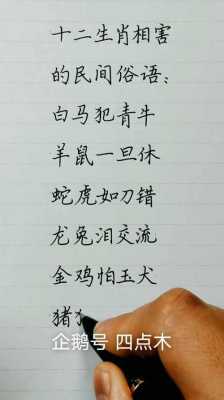 十二生肖相害
的民间俗语:
白马犯青牛
羊鼠一旦休
蛇虎如刀错
龙兔泪交流
金鸡怕玉犬
猪
企鹅号 四点木